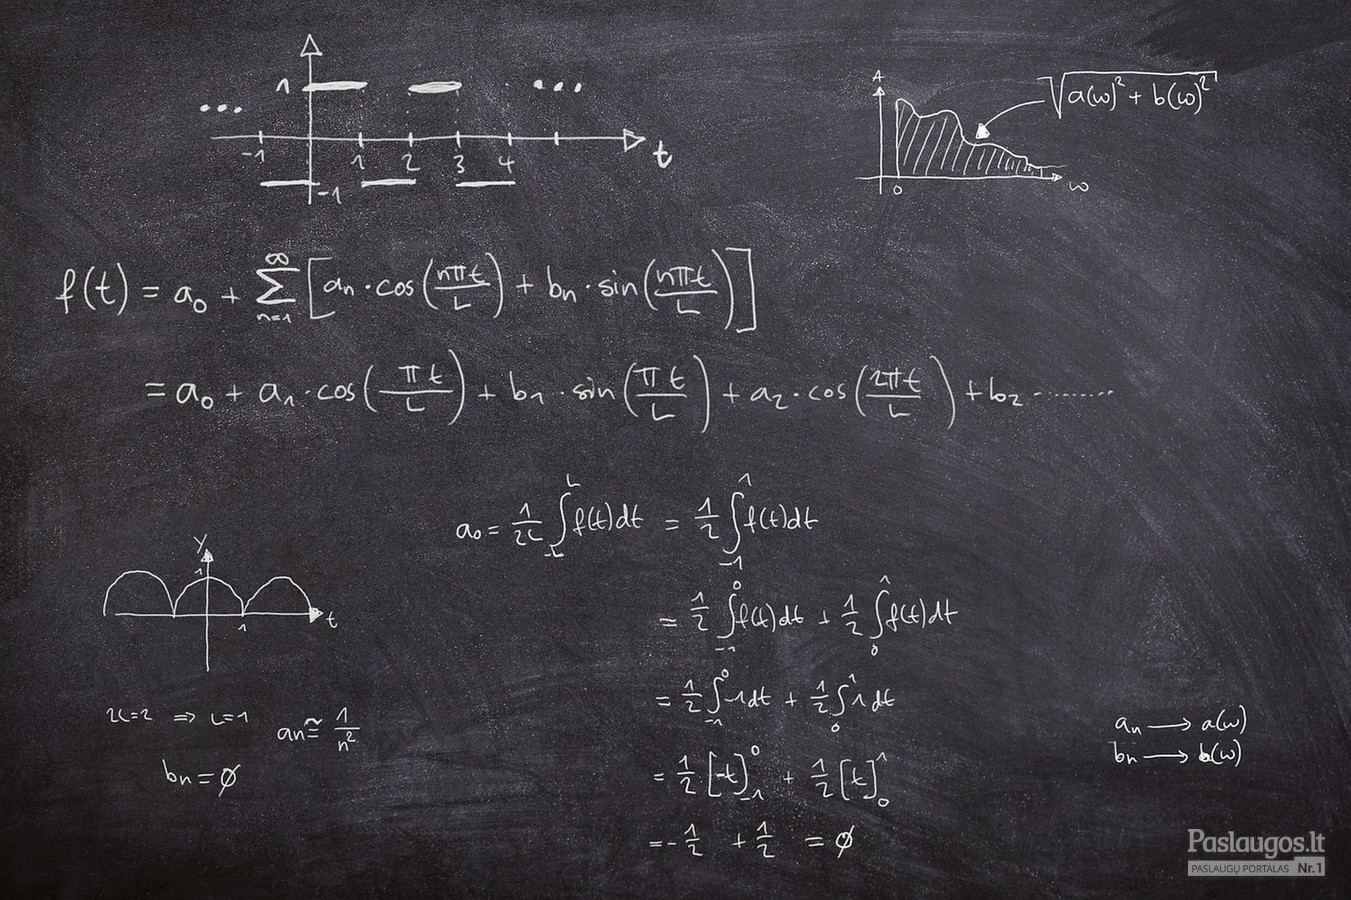 1
...
...
-1 1 2 3 4 t
-1
A
√a(ω)² + b(ω)²
0 ω
f(t) = a₀ + ∞ ∑ n=1 [aₙ · cos(nπt/L) + bₙ · sin(nπt/L)]
= a₀ + a₁ · cos(πt/L) + b₁ · sin(πt/L) + a₂ · cos(2πt/L) + b₂ ........
a₀ = 1/2L ∫_-L^L f(t)dt = 1/2 ∫_-1^1 f(t)dt
= 1/2 ∫_-1^0 f(t)dt + 1/2 ∫_0^1 f(t)dt
= 1/2 ∫_-1^0 -1dt + 1/2 ∫_0^1 1dt
= 1/2 [-t]_-1^0 + 1/2 [t]_0^1
= -1/2 + 1/2 = ∅
y
1
1 t
2L=2 ⇒ L=1
aₙ ≅ 1/n²
bₙ = ∅
aₙ → a(ω)
bₙ → b(ω)
Paslaugos.lt
PASLAUGŲ PORTALAS Nr.1